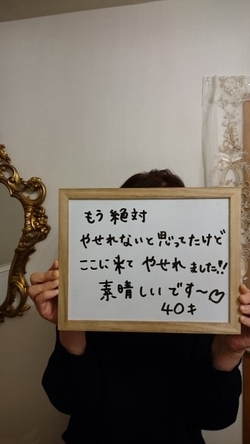 もう絶対
やせれないと思ってたけど
ここに来て やせれました!!
素晴しいです〜♡
40キ